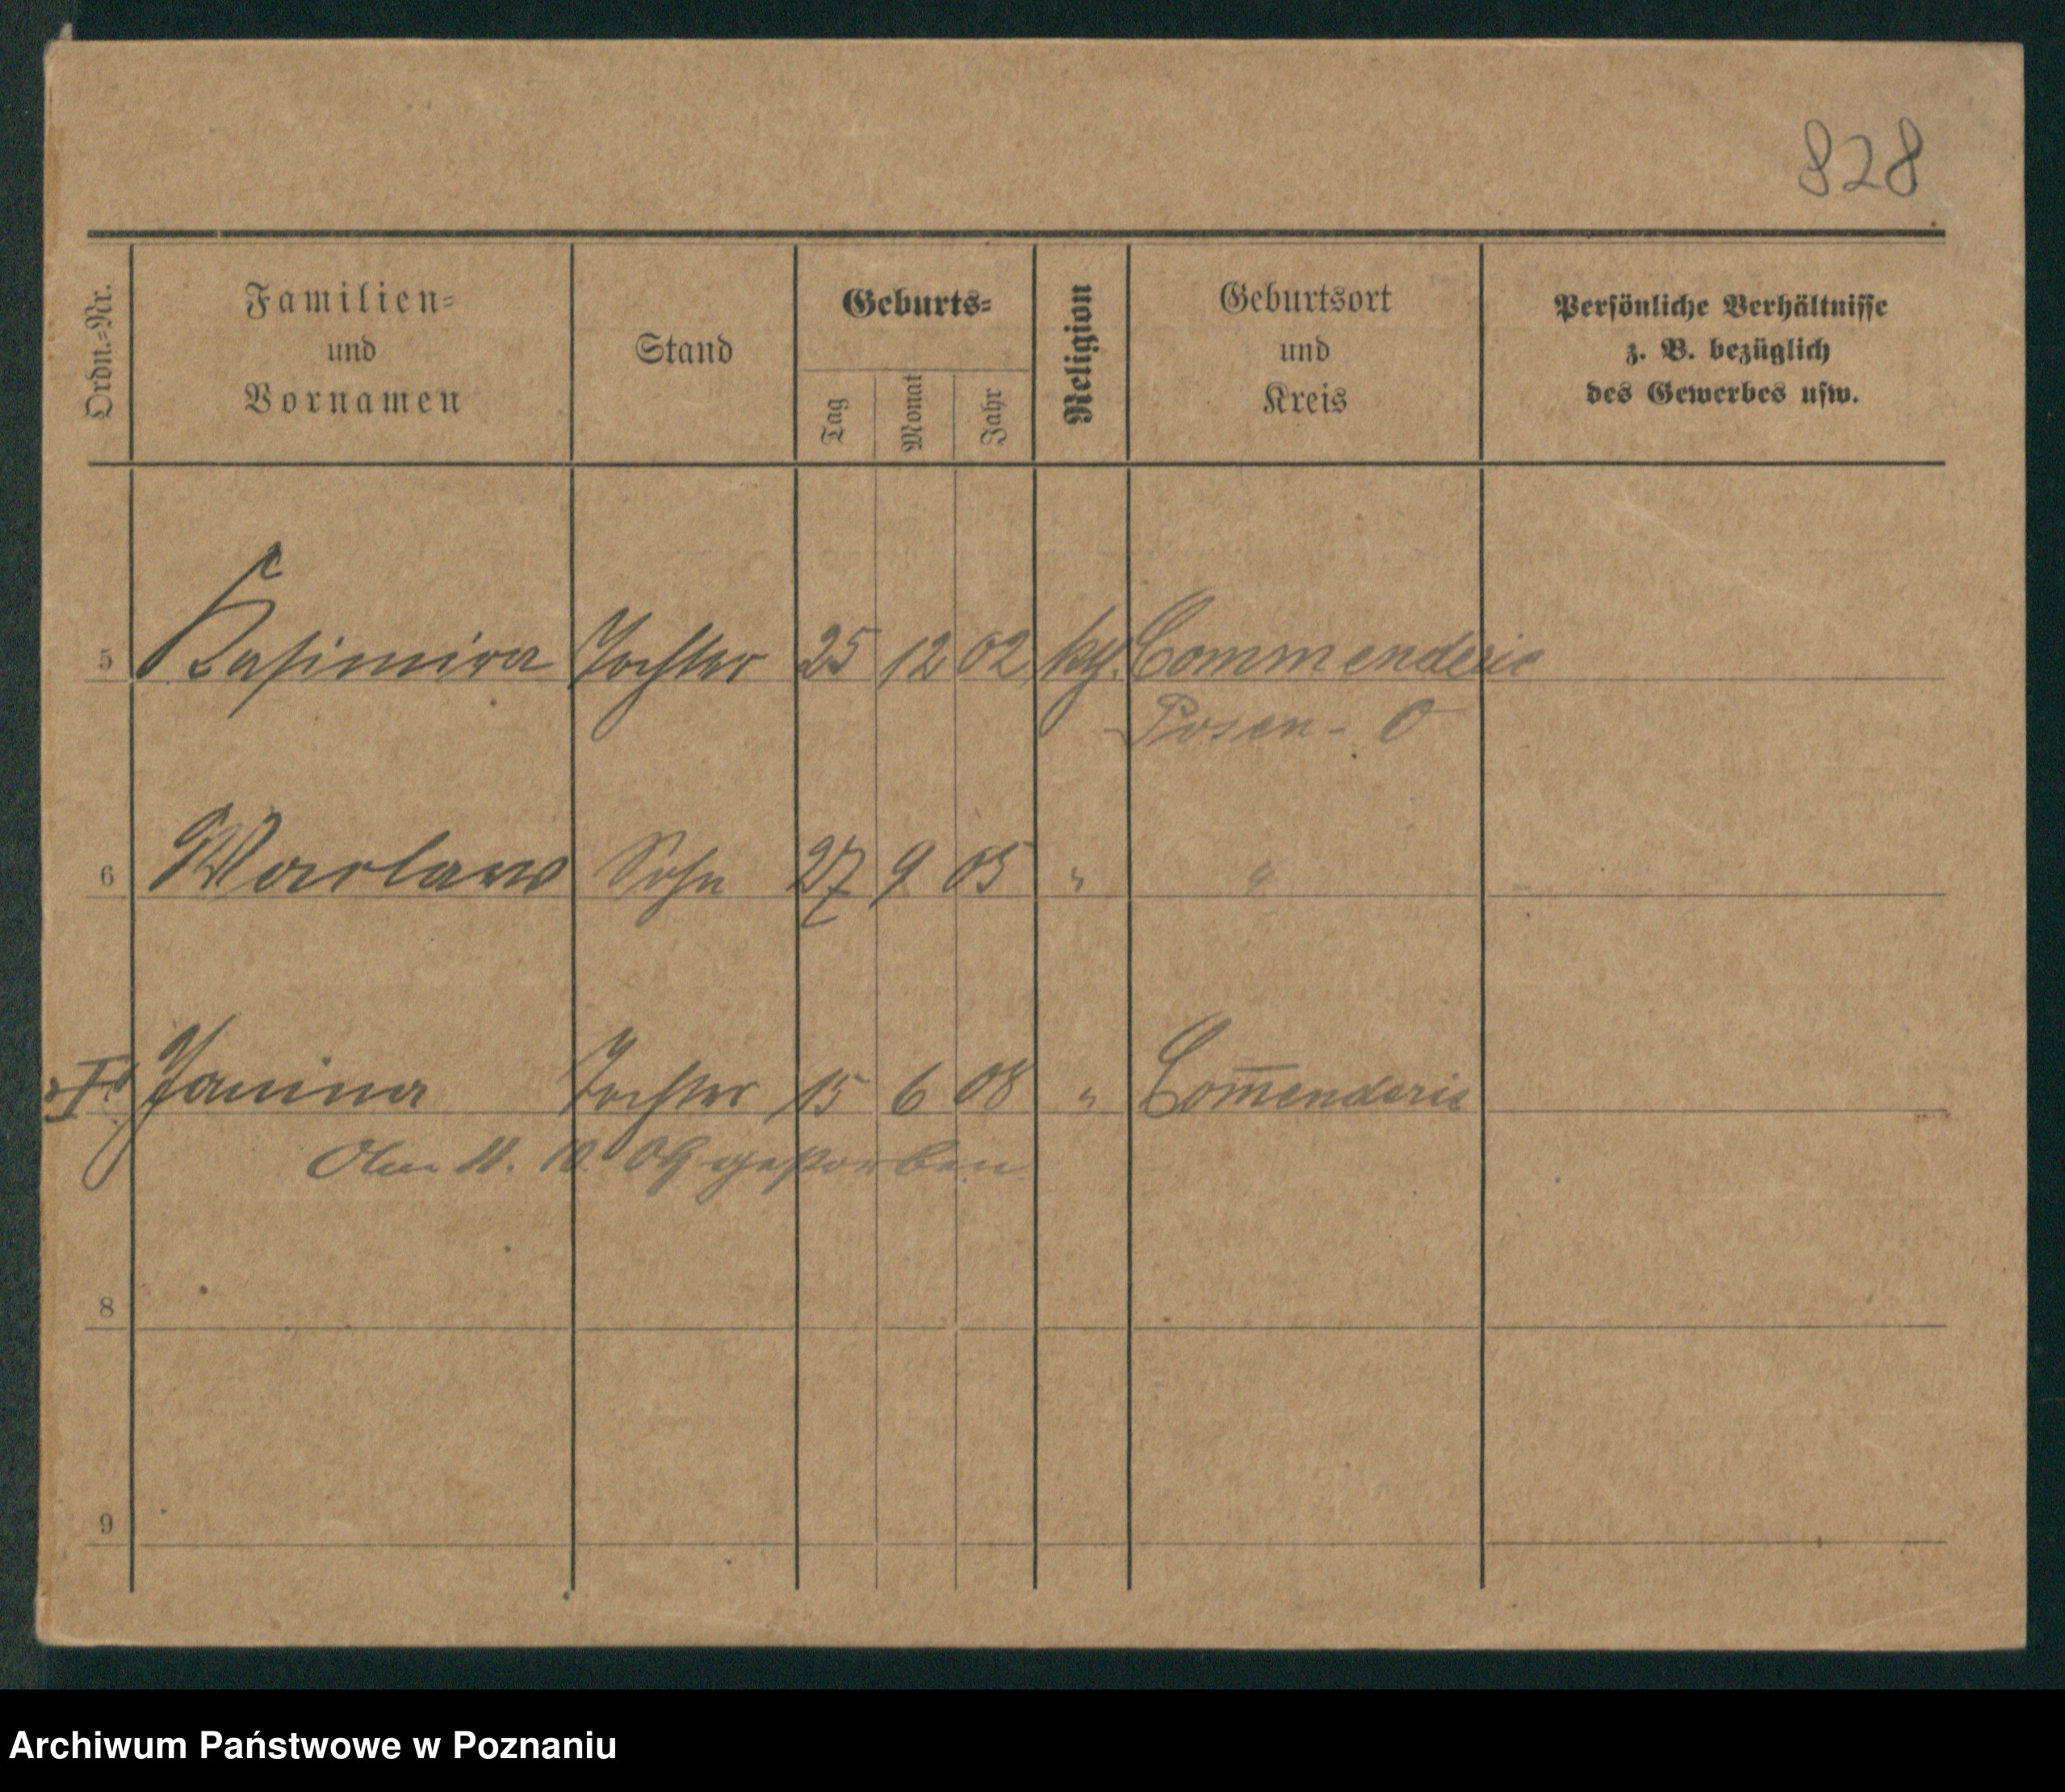 828
Ordn.=Nr.
Familien=
und
Vornamen
Stand
Geburts=
Tag
Monat
Jahr
Religion
Geburtsort
und
Kreis
Persönliche Verhältnisse
z. B. bezüglich
des Gewerbes usw.
5 Kasimira Tochter 25 12 02 kg. Commenderie
Posen - O
6 Waclaw Sohn 27 9 05 " "
Janina Tochter 15 6 08 " Com̅enderie
Am 11. 10. 09 gestorben
8
9
Archiwum Państwowe w Poznaniu